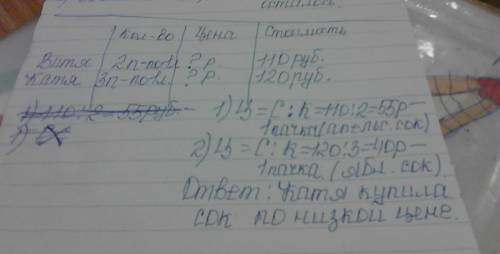 остались.
Кол-во Цена Стоимость
Витя 2п-по1л ?р 110руб.
Катя 3п-по1л ?р. 120руб.
1) 110:2=55руб -
1)
1) Ц=С:К=110:2=55р-
1пачка(апельс.сок)
2) Ц=С:К=120:3=40р-
1пачка (ябл.сок)
Ответ: Катя купила
сок по низкой цене.